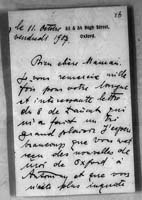 16
le 11 Octobre
vendredi 1907.
82 & 84 High Street,
Oxford.
Bien chère Maman
Je vous remercie mille
fois pour votre longue
et intéressante lettre
du 8 de
m'a fait un
grand plaisir. J'espère
beaucoup que vous avez
reçu des nouvelles de
moi de Oxford à
et que vous
n'êtes plus inquiète